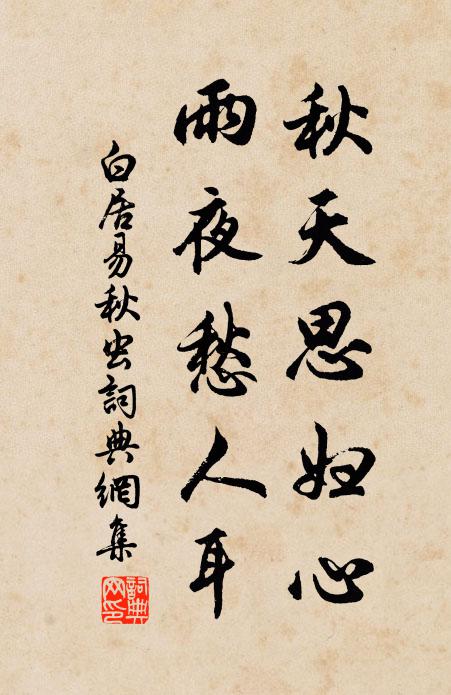 秋天思妇心
雨夜愁人耳
白居易秋虫詞典網集
詞典网印